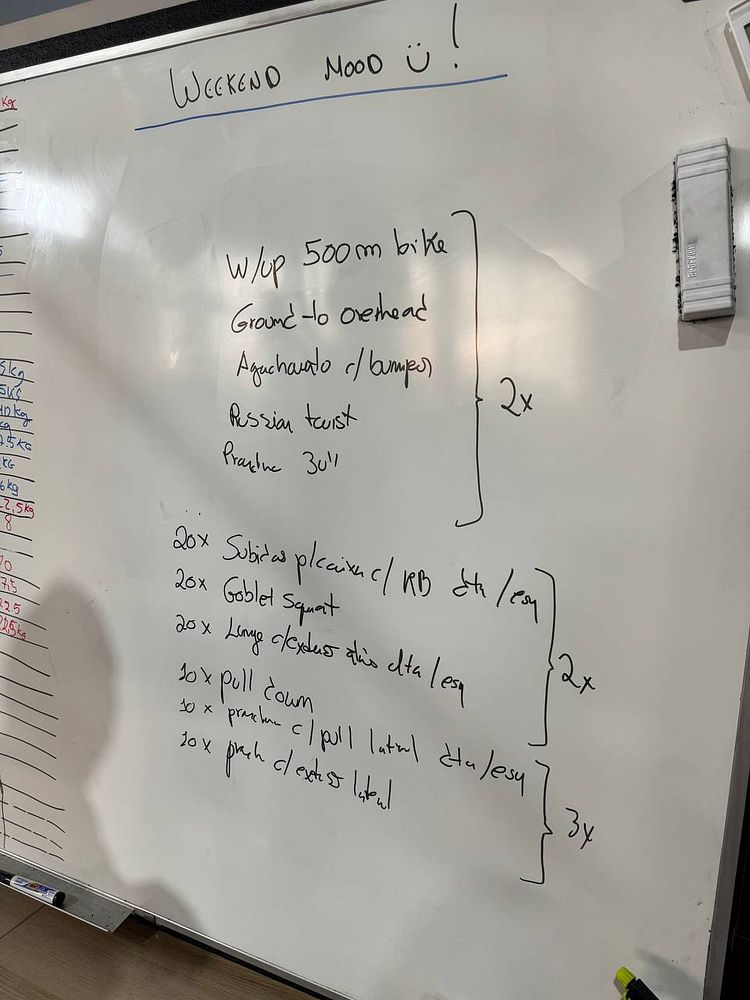 WEEKEND MOOD !
W/up 500m bike
Ground to overhead
Agachamento c/bumper
Russian twist
Prancha 30"
2x
20x Subidas p/caixa c/ KB dta/esq
20x Goblet Squat
20x Lunge c/ dta/esq
2x
10x pull down
10x prancha c/pull lateral dta/esq
10x c/ lateral
3x
Kgs
5kg
5KG
10kg
kg
2.5KG
KG
6kg
22,5kg
8
70
7.5
22.5
22,5kg